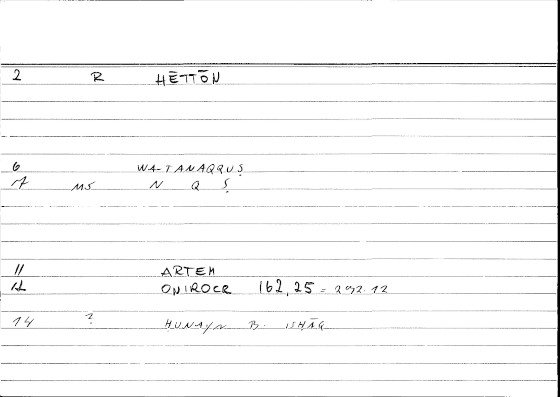 2 R HĒTTŌN
6 WA-TANAQQUṢ
MS N Q Ṣ
11 ARTEM
12 ONIROCR 162,25 = 292.12
14 ? HUNAYN B. ISHĀQ